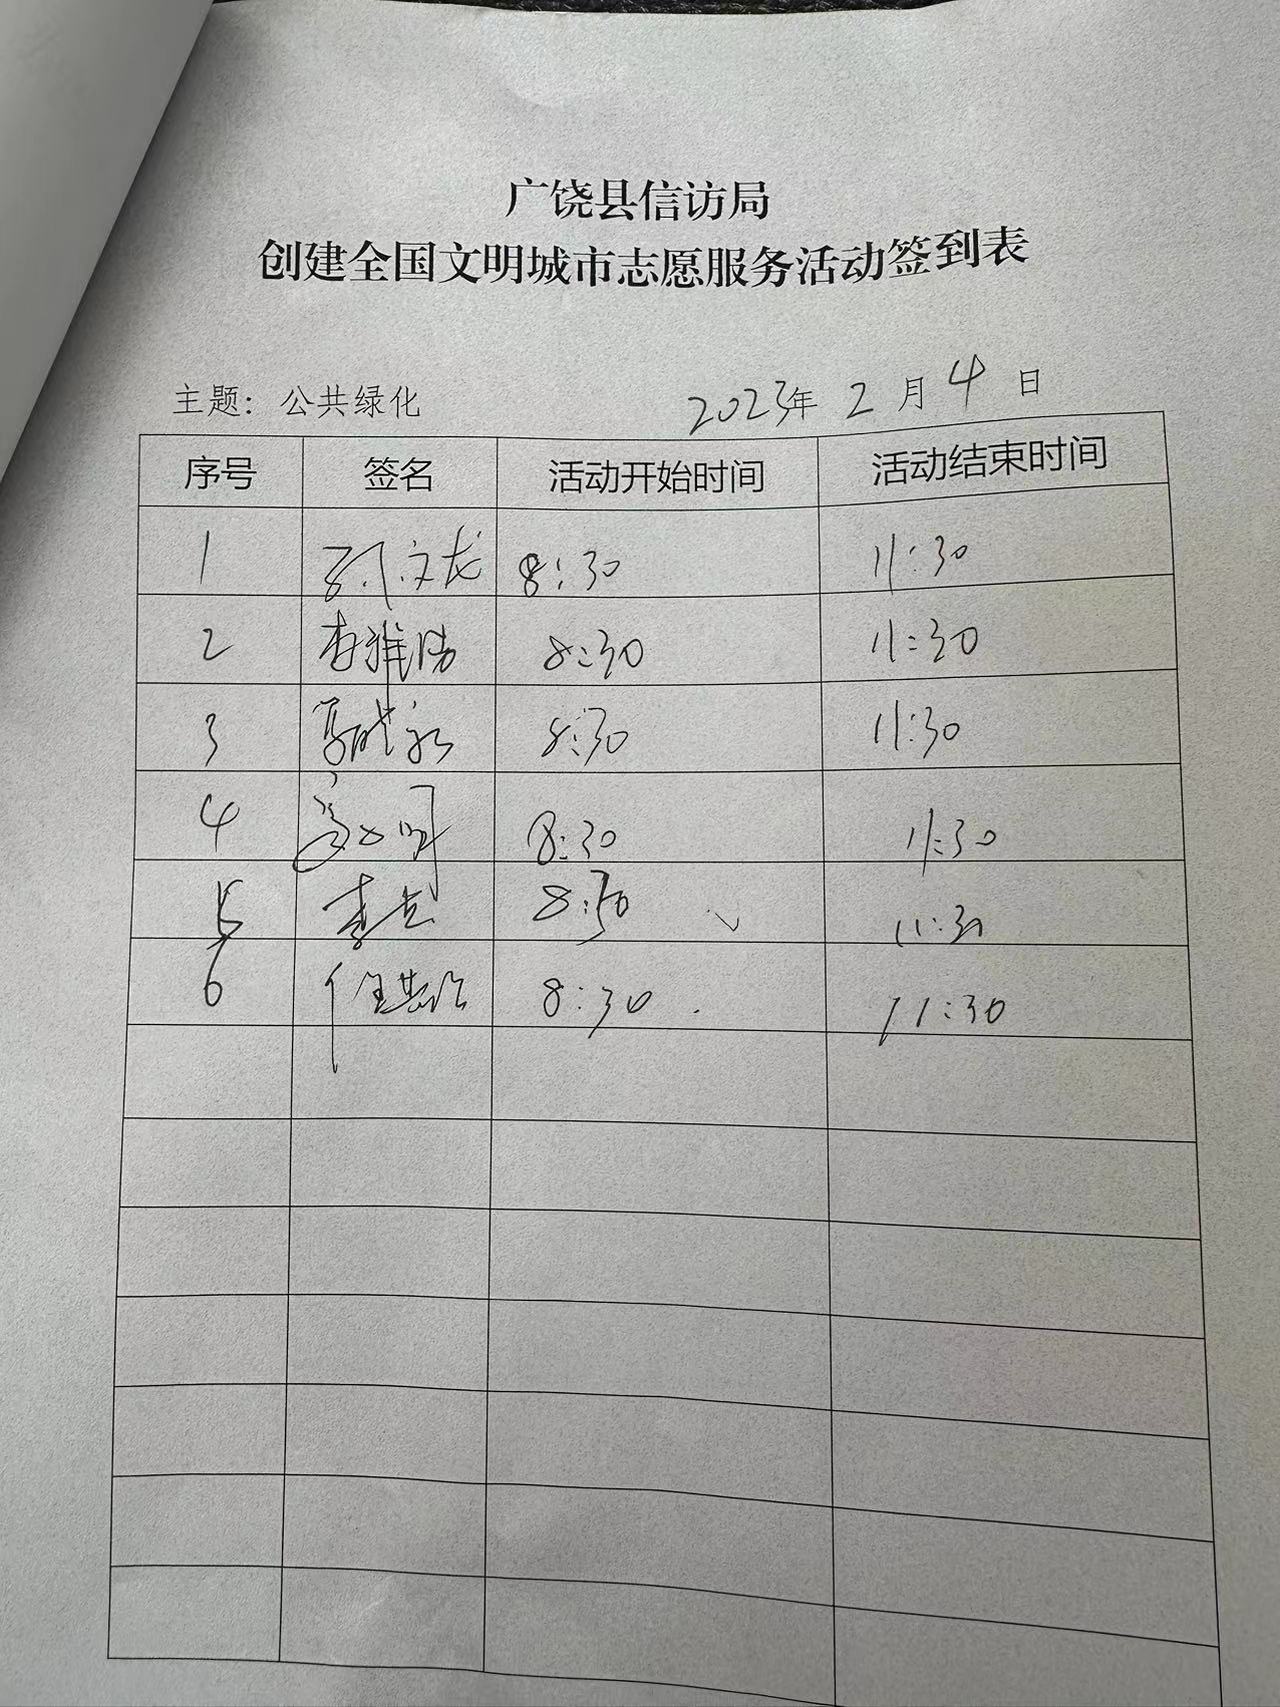 广饶县信访局
创建全国文明城市志愿服务活动签到表
主题：公共绿化 2023年 2 月 4 日
序号 签名 活动开始时间 活动结束时间
1 孙文龙 8:30 11:30
2 8:30 11:30
3 8:30 11:30
4 8:30 11:30
5 8:30 11:30
6 8:30 11:30